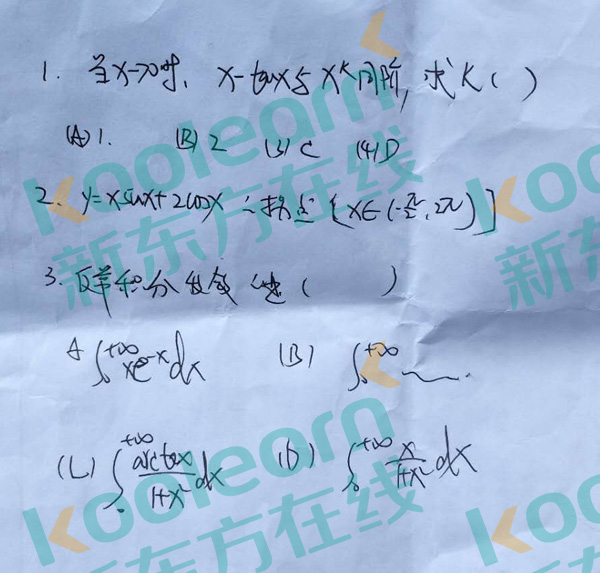 1. 当x→0时, x-tanx与x^k同阶, 求k( )
(A) 1. (B) 2 (3) C (4) D
2. y=xsinx+2cosx 拐点 [x∈(-π/2, 2π)]
3. 反常积分发散 ( )
A ∫₀^{+∞} xe^{-x}dx (B) ∫₀^{+∞}
(C) ∫₀^{+∞} arctanx/(1+x²) dx (D) ∫₀^{+∞} x/(1+x²) dx
koolearn
新东方在线
koolearn
新东方在线
koolearn
新东方在线
koolearn
新东方在线